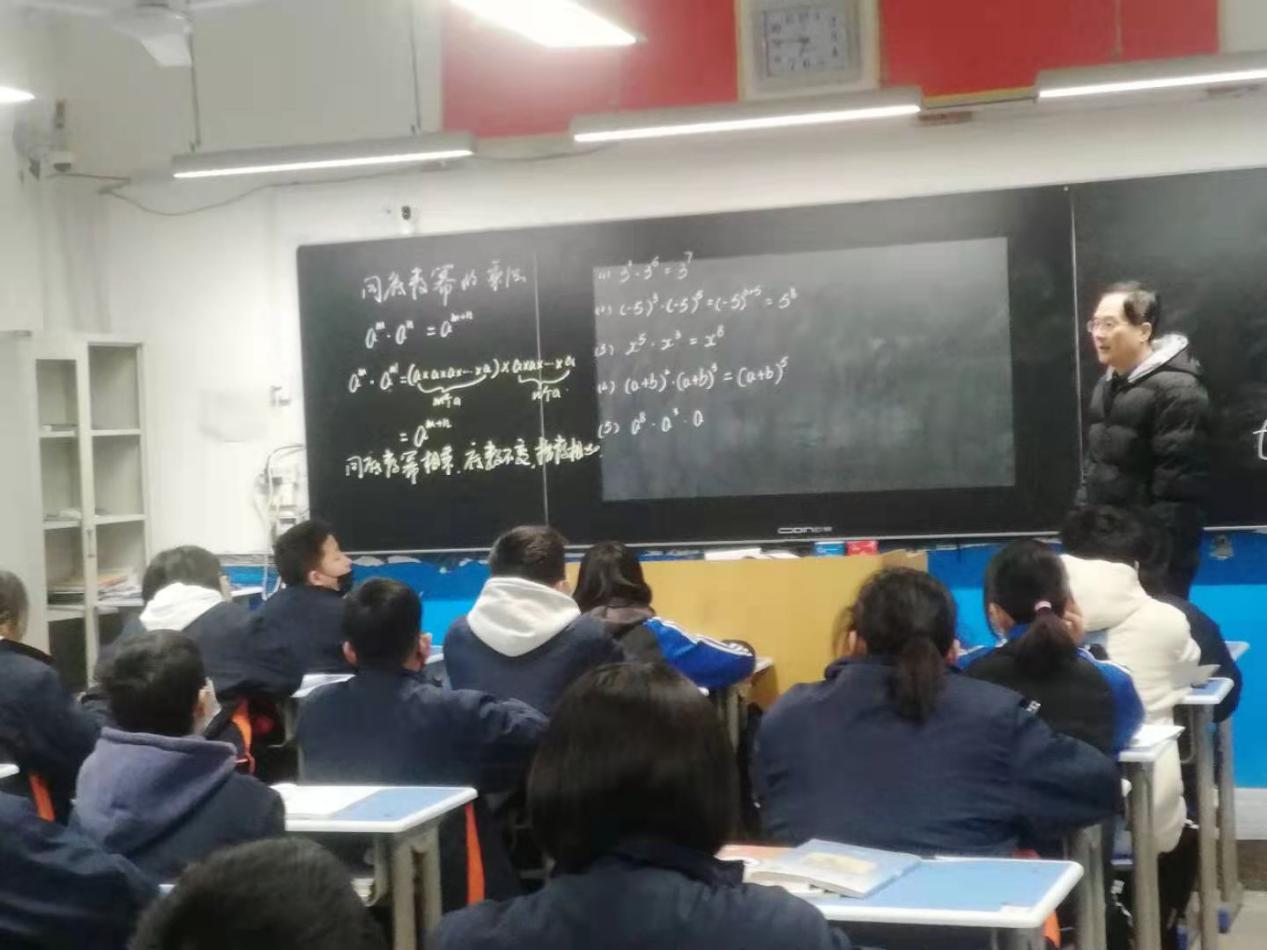 同底数幂的乘法
aᵐ·aⁿ=aᵐ⁺ⁿ
aᵐ·aⁿ=(a×a×a×…×a)×a×a×…×a
m个a n个a
=aᵐ⁺ⁿ
同底数幂相乘,底数不变,指数相加
(1) 3¹·3⁶=3⁷
(2) (-5)³·(-5)⁵=(-5)³⁺⁵=5⁸
(3) x⁵·x³=x⁸
(4) (a+b)²·(a+b)³=(a+b)⁵
(5) a⁸·a³·a